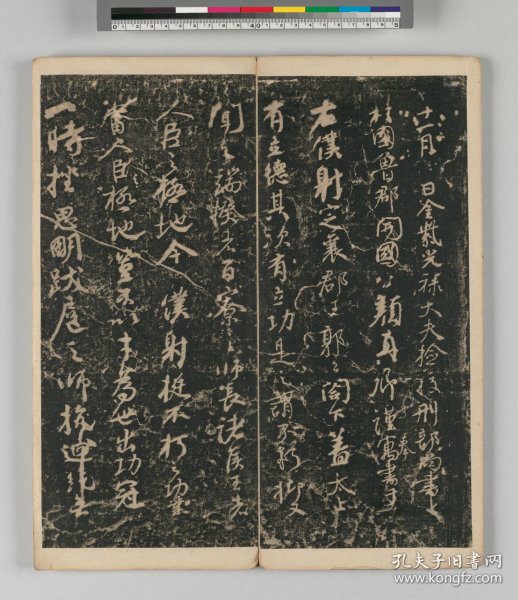 十一月 日金紫光祿大夫檢校刑部尚書上
柱國魯郡開國公顏真卿謹奉寓書于
右僕射定襄郡王郭公閤下蓋太上
有立德其次有立功是之謂不朽抑又
聞之端揆者百寮之師長諸侯王者
人臣之極地今僕射挺不朽之功業
當人臣之極地豈不以才為世出功冠
一時挫思明跋扈之師抗迴紇無
孔夫子旧书网
kongfz.com